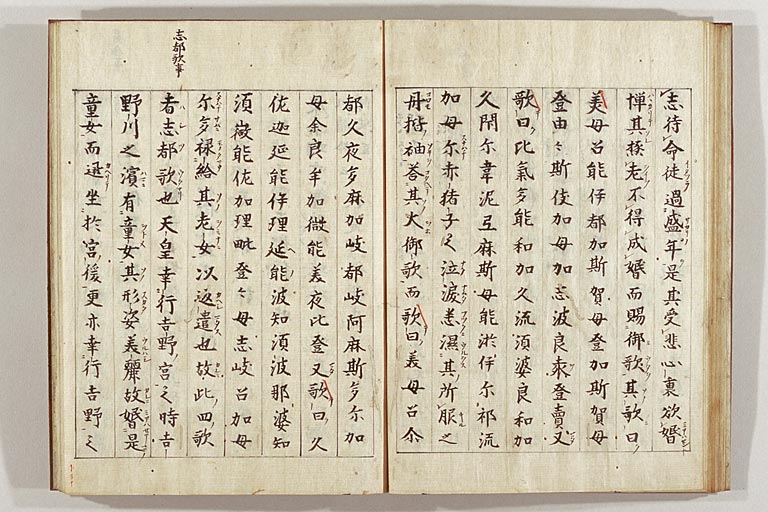 志待命徒過盛年是其愛悲心裏欲婚
憚其老不得成婚而賜御歌其歌曰
美母呂能伊都加斯賀母登加斯賀母
登由々斯伎加母加志波良袁登賣又
歌曰比氣多能和加久流須婆良和加
久閇尓韋泥弖麻斯母能淤伊尓祁流
加母尓赤猪子之泣淚悉濕其所服之
丹揩袖荅其大御歌而歌曰美母呂尓
都久夜多麻加岐都岐阿麻斯多尓加
母余良牟加微能美夜比登又歌曰久
佐迦延能伊理延能波知須波那婆知
須微能佐加理毗登々母志岐呂加母
尓多禄給其老女以返遣也故此四歌
志都歌事
者志都歌也天皇幸行吉野宮之時吉
野川之濱有童女其形姿美麗故婚是
童女而還坐於宮後更亦幸行吉野之